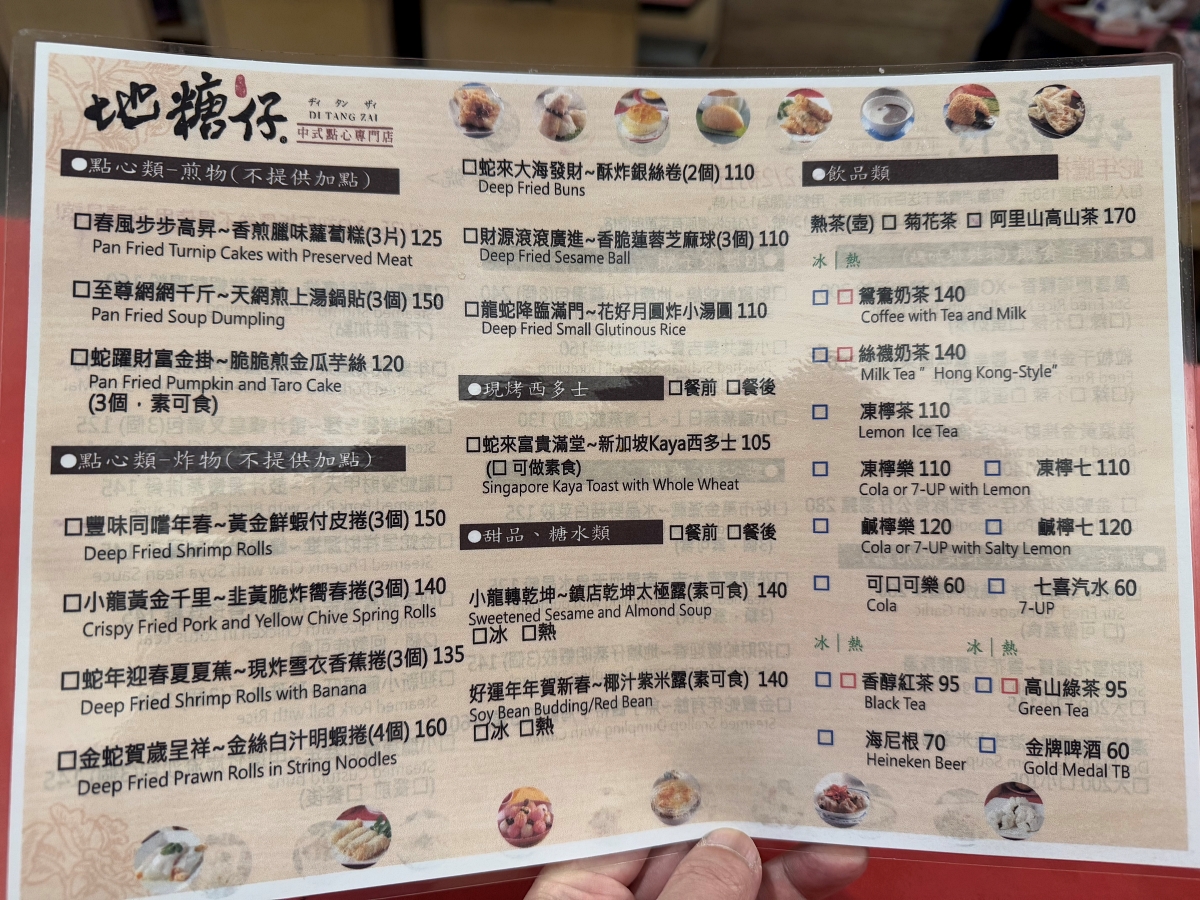 地糖仔
ディ タン ザィ
DI TANG ZAI
中式點心專門店
●點心類-煎物(不提供加點)
□春風步步高昇~香煎臘味蘿蔔糕(3片) 125
Pan Fried Turnip Cakes with Preserved Meat
□至尊網網千斤~天網煎上湯鍋貼(3個) 150
Pan Fried Soup Dumpling
□蛇躍財富金掛~脆脆煎金瓜芋絲 120
Pan Fried Pumpkin and Taro Cake
(3個・素可食)
●點心類-炸物(不提供加點)
□豐味同嚐年春~黃金鮮蝦付皮捲(3個) 150
Deep Fried Shrimp Rolls
□小龍黃金千里~韭黃脆炸嚮春捲(3個) 140
Crispy Fried Pork and Yellow Chive Spring Rolls
□蛇年迎春夏夏蕉~現炸雪衣香蕉捲(3個) 135
Deep Fried Shrimp Rolls with Banana
□金蛇賀歲呈祥~金絲白汁明蝦捲(4個) 160
Deep Fried Prawn Rolls in String Noodles
□蛇來大海發財~酥炸銀絲卷(2個) 110
Deep Fried Buns
□財源滾滾廣進~香脆蓮蓉芝麻球(3個) 110
Deep Fried Sesame Ball
□龍蛇降臨滿門~花好月圓炸小湯圓 110
Deep Fried Small Glutinous Rice
●現烤西多士 □餐前 □餐後
□蛇來富貴滿堂~新加坡Kaya西多士 105
(□ 可做素食)
Singapore Kaya Toast with Whole Wheat
●甜品、糖水類 □餐前 □餐後
小龍轉乾坤~鎮店乾坤太極露(素可食) 140
Sweetened Sesame and Almond Soup
□冰 □熱
好運年年賀新春~椰汁紫米露(素可食) 140
Soy Bean Budding/Red Bean
□冰 □熱
●飲品類
熱茶(壺) □ 菊花茶 □ 阿里山高山茶 170
冰|熱
□ □ 鴛鴦奶茶 140
Coffee with Tea and Milk
□ □ 絲襪奶茶 140
Milk Tea " Hong Kong-Style"
□ 凍檸茶 110
Lemon Ice Tea
□ 凍檸樂 110 □ 凍檸七 110
Cola or 7-UP with Lemon
□ 鹹檸樂 120 □ 鹹檸七 120
Cola or 7-UP with Salty Lemon
□ 可口可樂 60 □ 七喜汽水 60
Cola 7-UP
冰|熱 冰|熱
□ □ 香醇紅茶 95 □ □ 高山綠茶 95
Black Tea Green Tea
□ 海尼根 70 □ 金牌啤酒 60
Heineken Beer Gold Medal TB